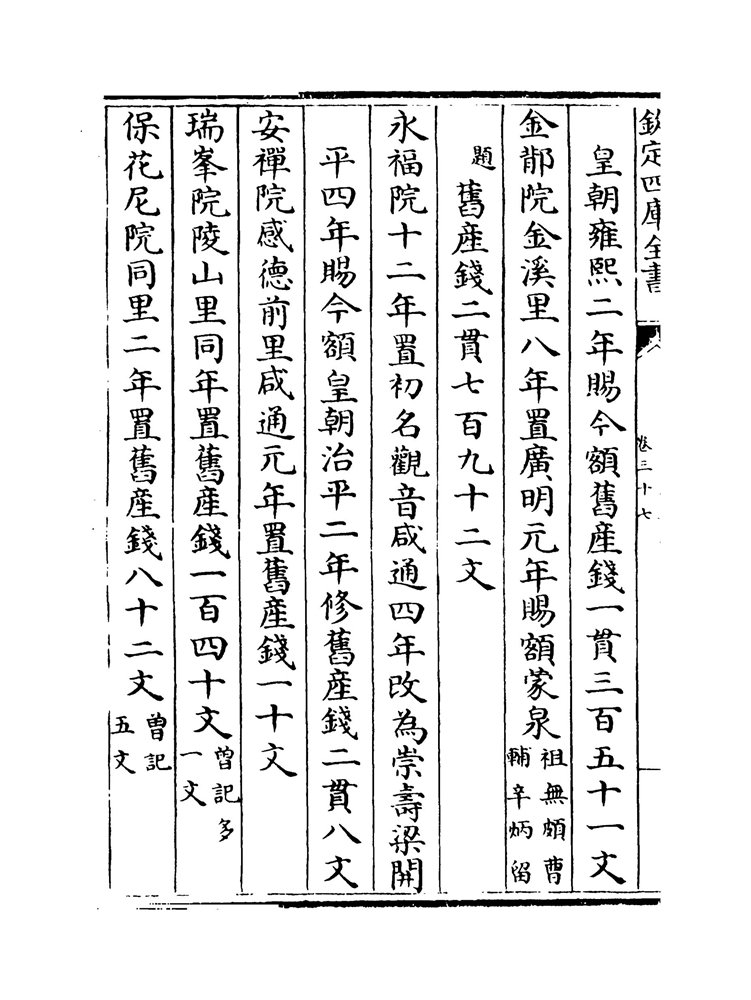 欽定四庫全書
卷三十七
皇朝雍熙二年賜今額舊産錢一貫三百五十一文
金鄁院金溪里八年置廣明元年賜額蒙泉祖無頗曹
輔辛炳留
題舊産錢二貫七百九十二文
永福院十二年置初名觀音咸通四年改為崇壽梁開
平四年賜今額皇朝治平二年修舊産錢二貫八文
安禪院感德前里咸通元年置舊産錢一十文
瑞峯院陵山里同年置舊産錢一百四十文曽記多
一文
保花尼院同里二年置舊産錢八十二文曽記
五文